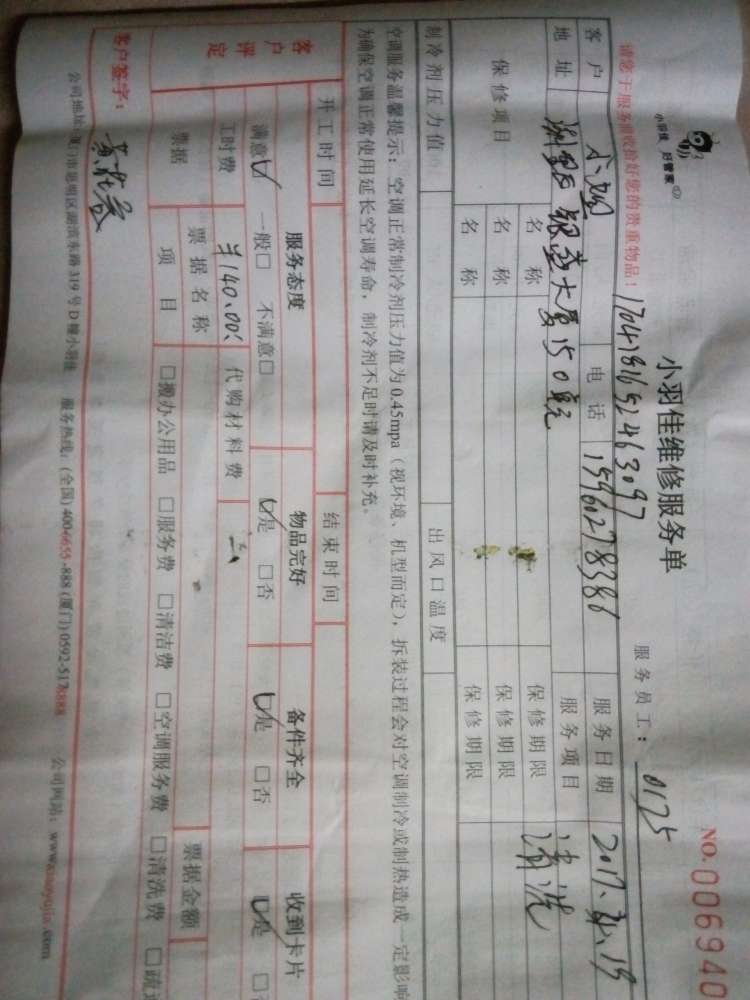 小羽佳 好管家
小羽佳维修服务单
NO.006940
请您于服务前收拾好您的贵重物品！
服务员工：0175
客户
电话 15960278386
服务日期 2017.
地址 大厦150单元
服务项目 清洗
保修项目
名称
保修期限
名称
保修期限
名称
保修期限
制冷剂压力值
出风口温度
空调服务温馨提示：空调正常制冷剂压力值为0.45mpa（视环境、机型而定），拆装过程会对空调制冷或制热造成一定影响
为确保空调正常使用延长空调寿命，制冷剂不足时请及时补充。
开工时间
结束时间
客户评定
服务态度
物品完好
备件齐全
收到卡片
满意☑ 一般□ 不满意□
☑是 □否
☑是 □否
☑是 □
工时费 ¥140.00
代购材料费
票据
票据名称
票据金额
项目
□搬办公用品 □服务费 □清洁费 □空调服务费 □清洗费 □疏
客户签字：
公司地址：厦门市思明区湖滨东路319号D幢小羽佳 服务热线：(全国) 400-6655-888 (厦门) 0592-5178888 公司网站：www.xiaoyujia.com